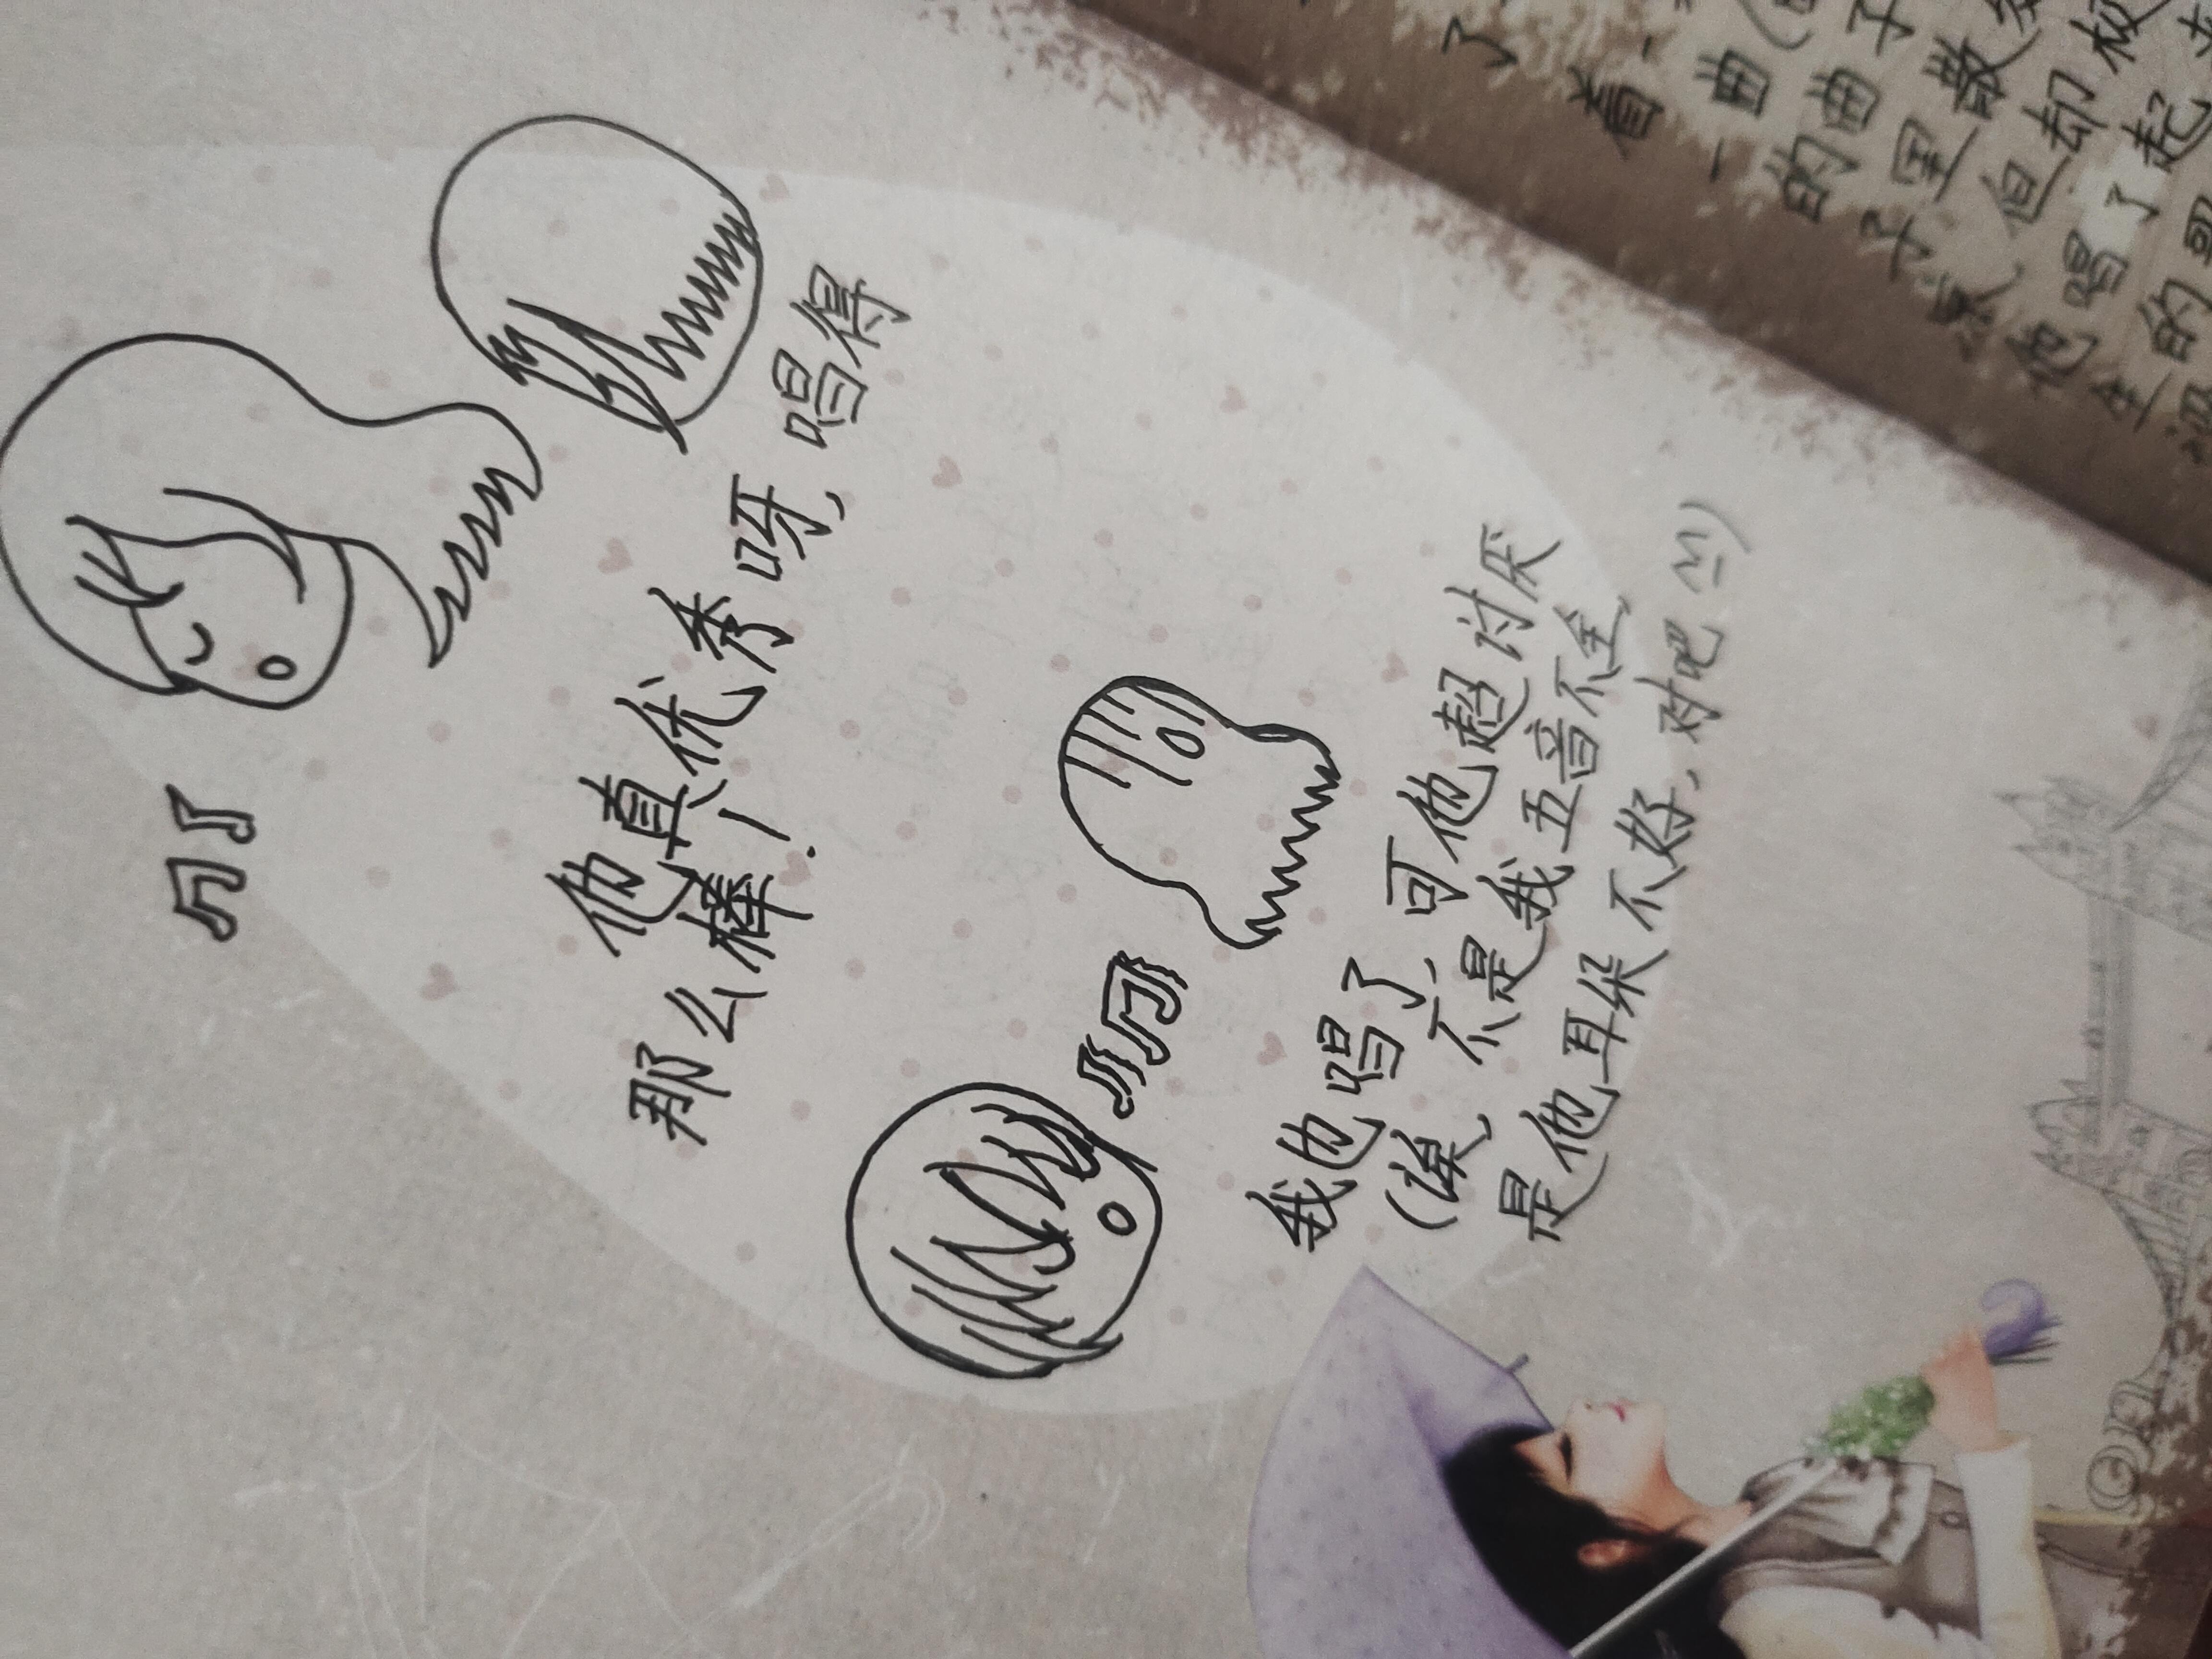 他真优秀呀,唱得
那么棒!
我也唱了,可他超讨厌
(诶,不是我五音不全,
是他耳朵不好,对吧
了
着一
一曲
的曲子
子里散
家但却
他唱了起
生的哥